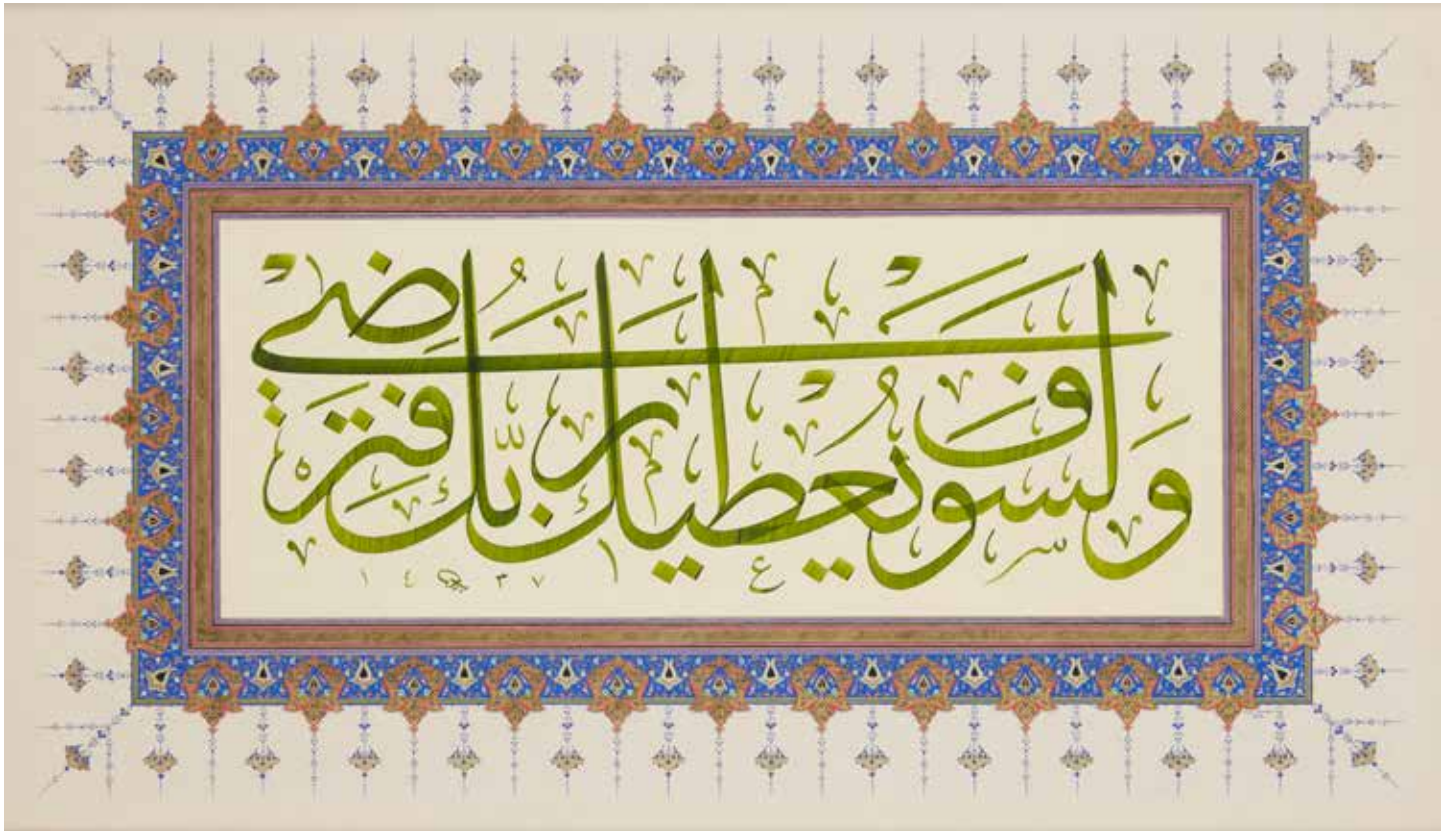 وَلَسَوْفَ يُعْطِيكَ رَبُّكَ فَتَرْضَى
١٤٣٧